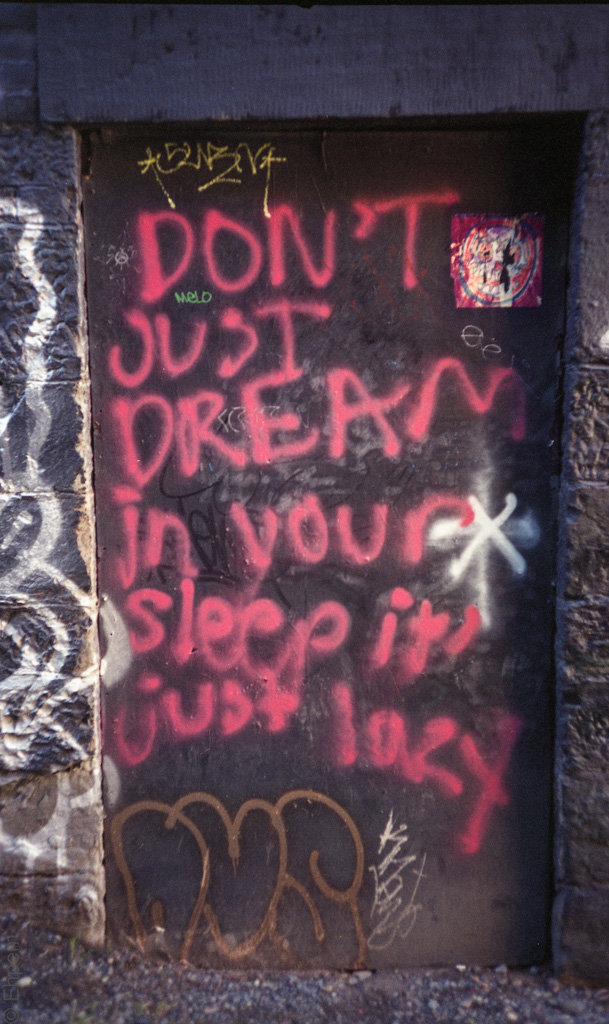 DON'T
JUST
DREAM
in your
sleep it's
just lazy
MELO